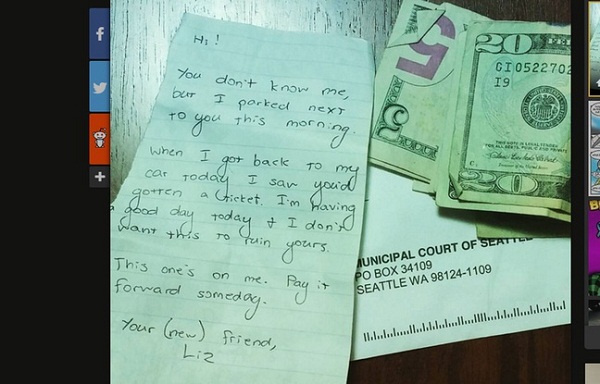 Hi!
You don't know me,
but I parked next
to you this morning.
When I got back to my
car today I saw you'd
gotten a ticket. I'm having
a good day today & I don't
want this to ruin yours.
This one's on me. Pay it
forward someday.
Your (new) friend,
Liz
5
5
20
GI0522702
I9
20
MUNICIPAL COURT OF SEATTL
PO BOX 34109
SEATTLE WA 98124-1109